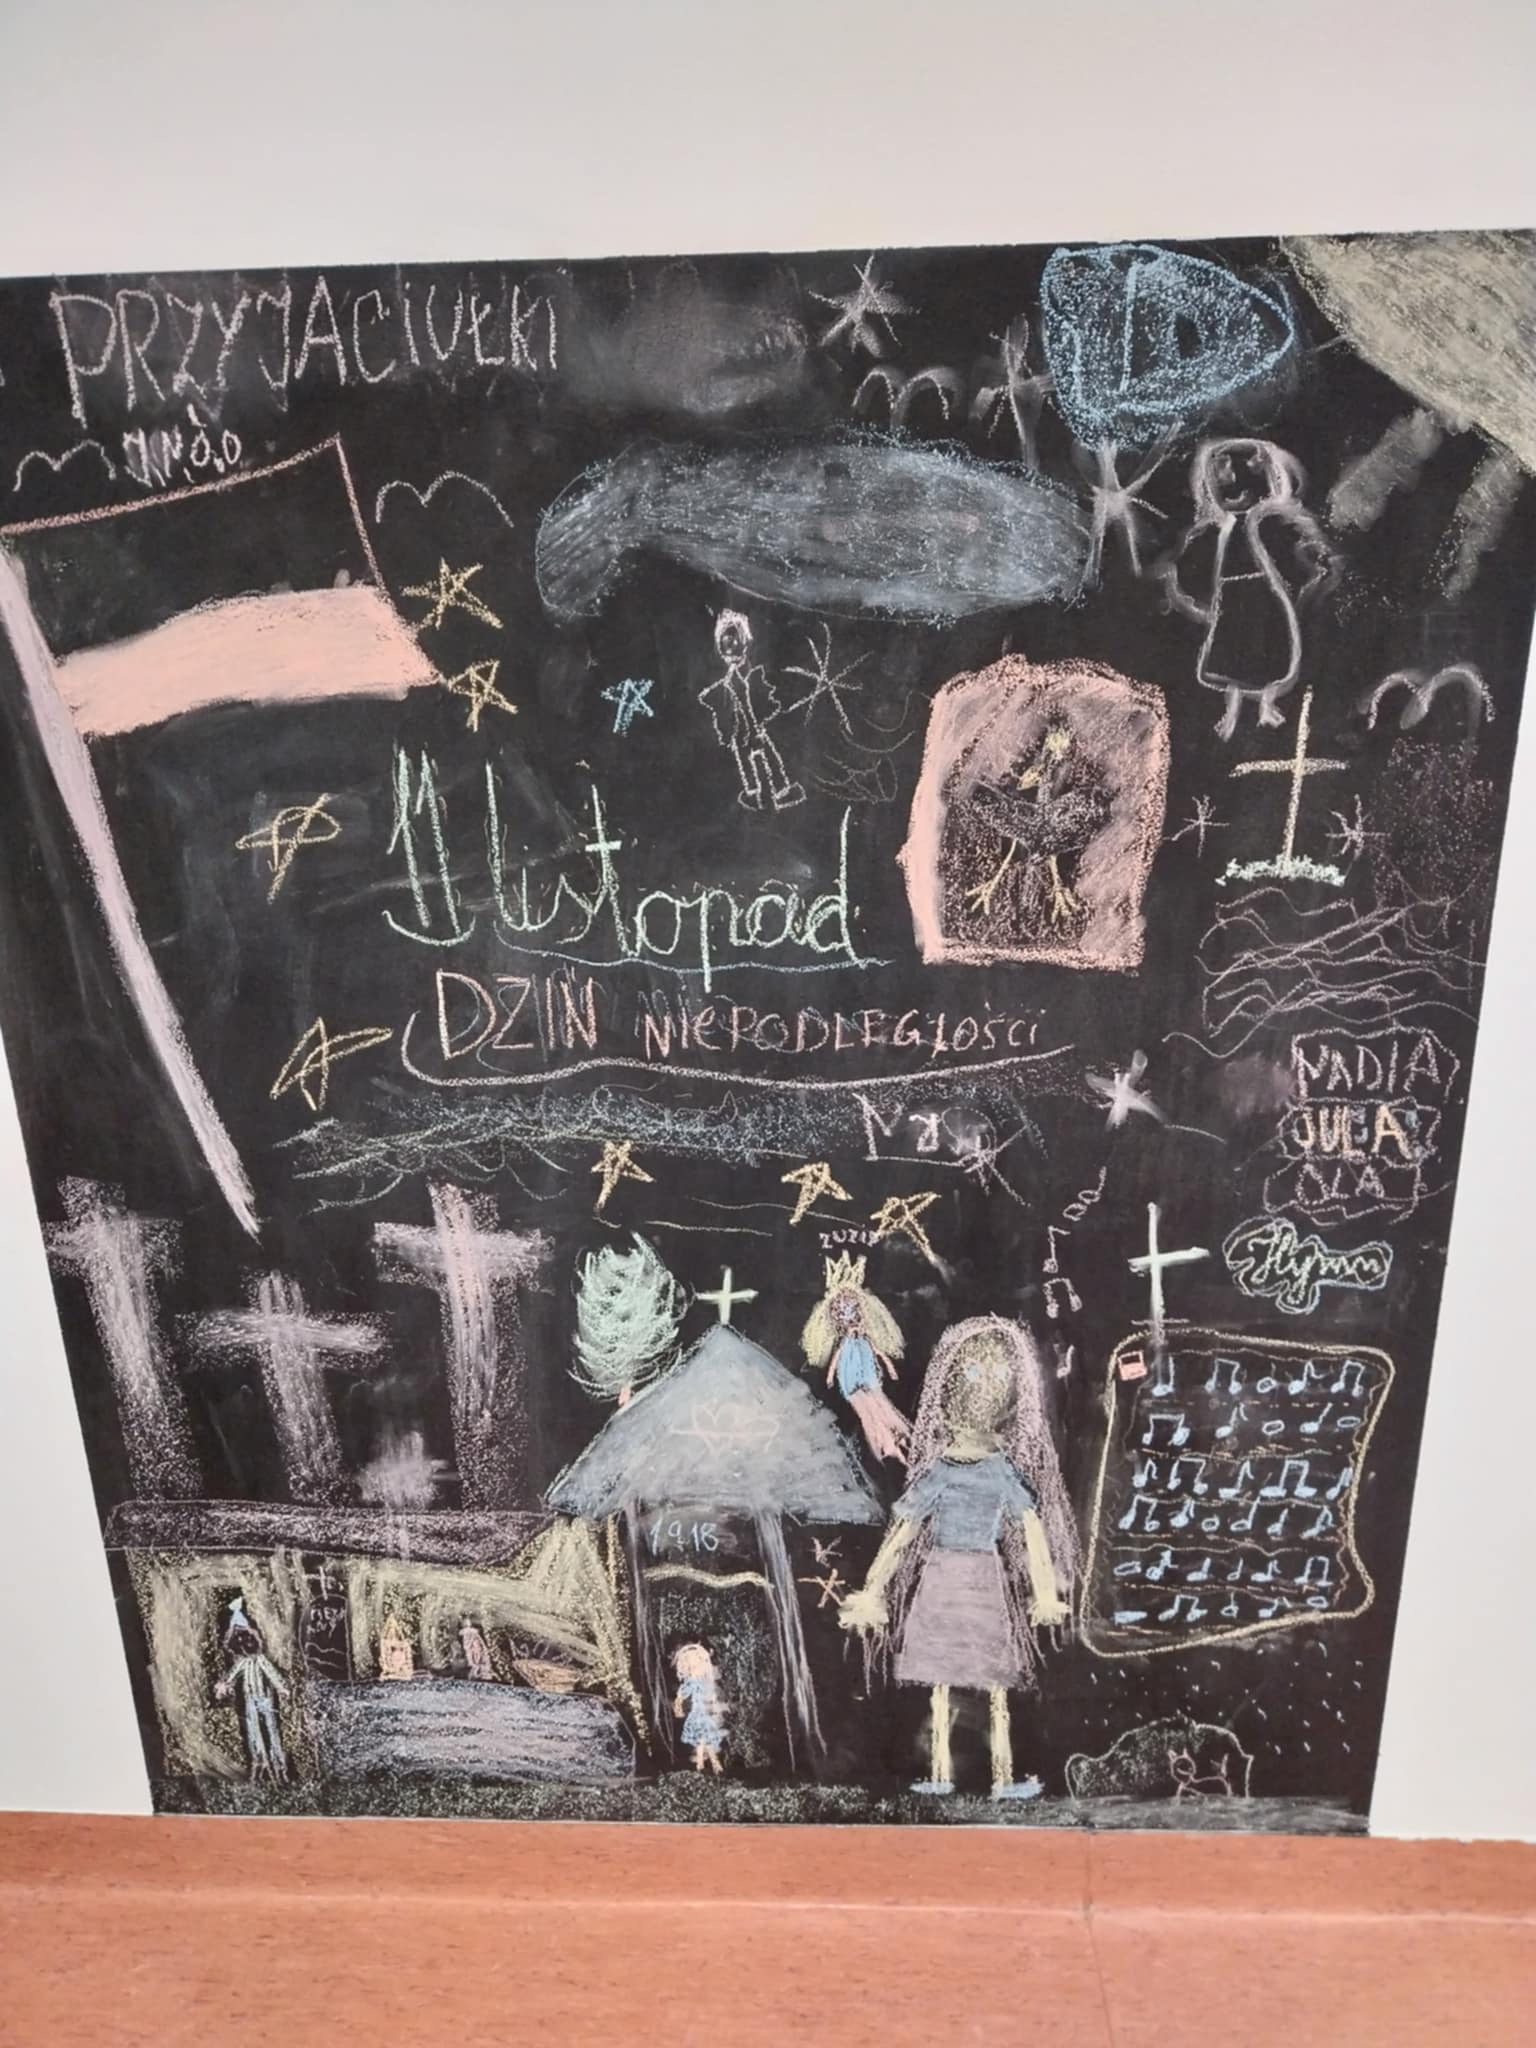 PRZYJACIUŁKI
11 listopad
DZIŃ NIEPODLEGŁOŚCI
NADIA
JULA
OLA
ZUZIA
Hymn
1918